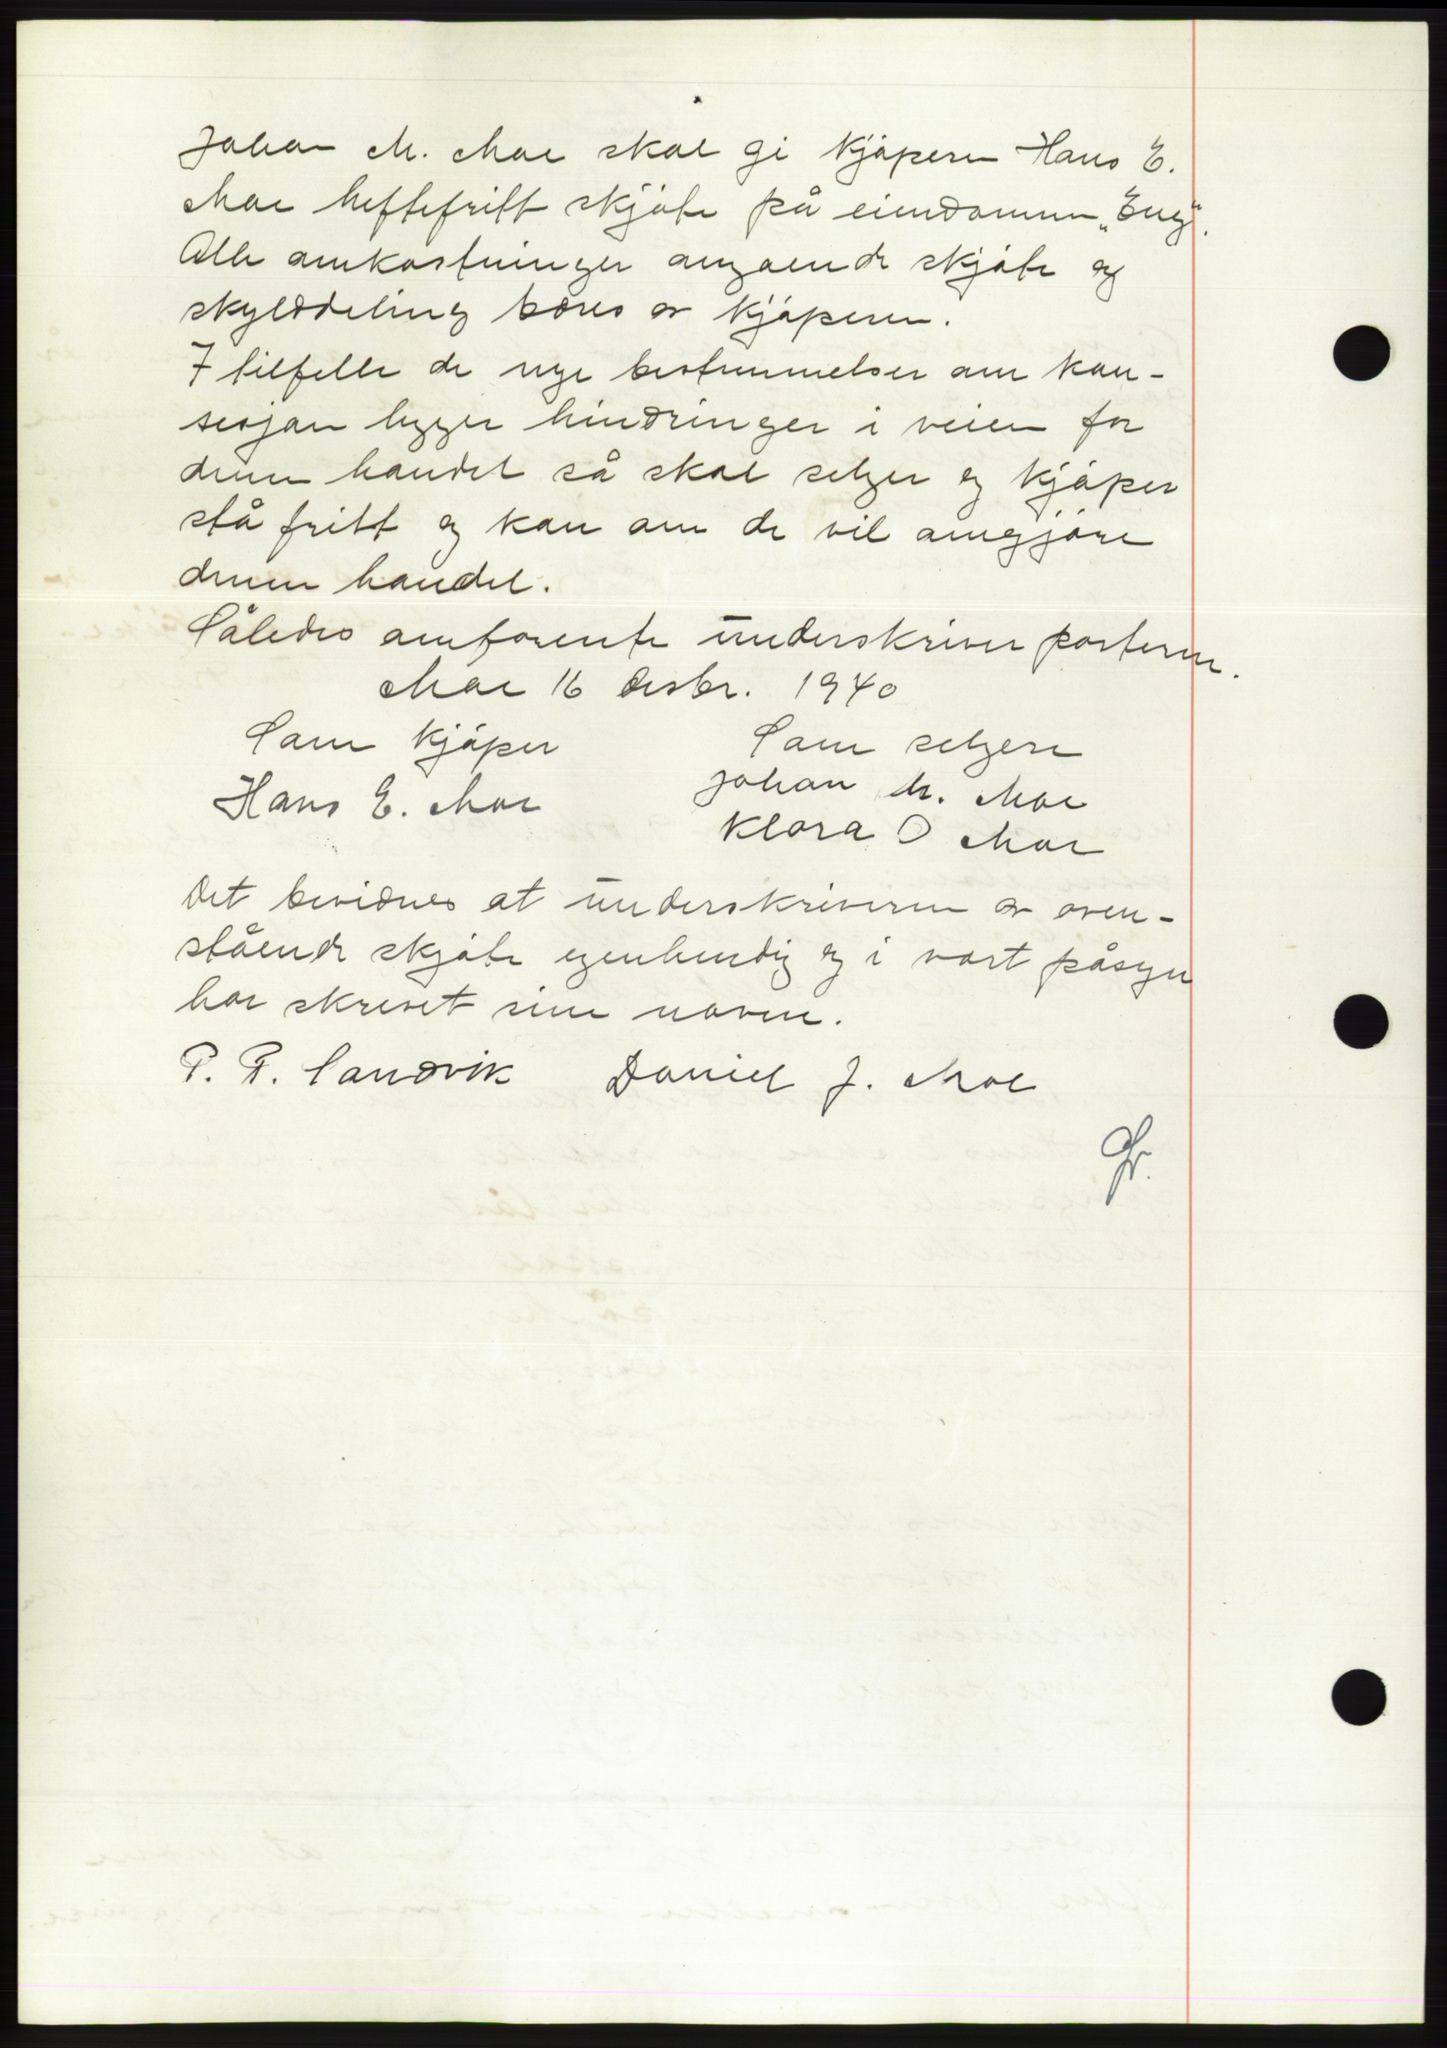 Johan M. Moe skal gi kjøperen Hans E.
Moe heftefritt skjøte på eiendommen „Eng".
Alle omkostninger angående skjøte og
skylddeling bæres av kjøperen.
I tilfelle de nye bestemmelser om kon-
sesjon legger hindringer i veien for
denne handel så skal selger og kjøper
stå fritt og kan om de vil omgjøre
denne handel.
Således omforente underskriver partene.
Moe 16 desbr. 1940
Som kjøper Som selgere
Hans E. Moe Johan M. Moe
Klara O Moe
Det bevidnes at underskriverne av oven-
stående skjøte egenhendig og i vort påsyn
har skrevet sine navne.
P. P. Sandvik Daniel J. Moe